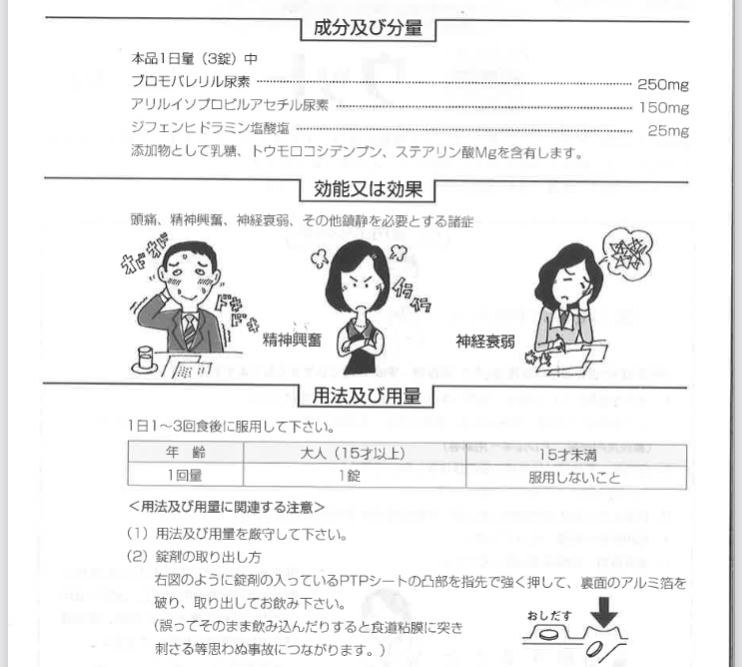 成分及び分量
本品1日量（3錠）中
ブロモバレリル尿素 …… 250mg
アリルイソプロピルアセチル尿素 …… 150mg
ジフェンヒドラミン塩酸塩 …… 25mg
添加物として乳糖、トウモロコシデンプン、ステアリン酸Mgを含有します。
効能又は効果
頭痛、精神興奮、神経衰弱、その他鎮静を必要とする諸症
オドオド
ドキドキ
精神興奮
イライラ
神経衰弱
用法及び用量
1日1～3回食後に服用して下さい。
年　齢　大人（15才以上）　15才未満
1回量　1錠　服用しないこと
＜用法及び用量に関連する注意＞
（1）用法及び用量を厳守して下さい。
（2）錠剤の取り出し方
右図のように錠剤の入っているPTPシートの凸部を指先で強く押して、裏面のアルミ箔を
破り、取り出してお飲み下さい。
（誤ってそのまま飲み込んだりすると食道粘膜に突き
刺さる等思わぬ事故につながります。）
おしだす